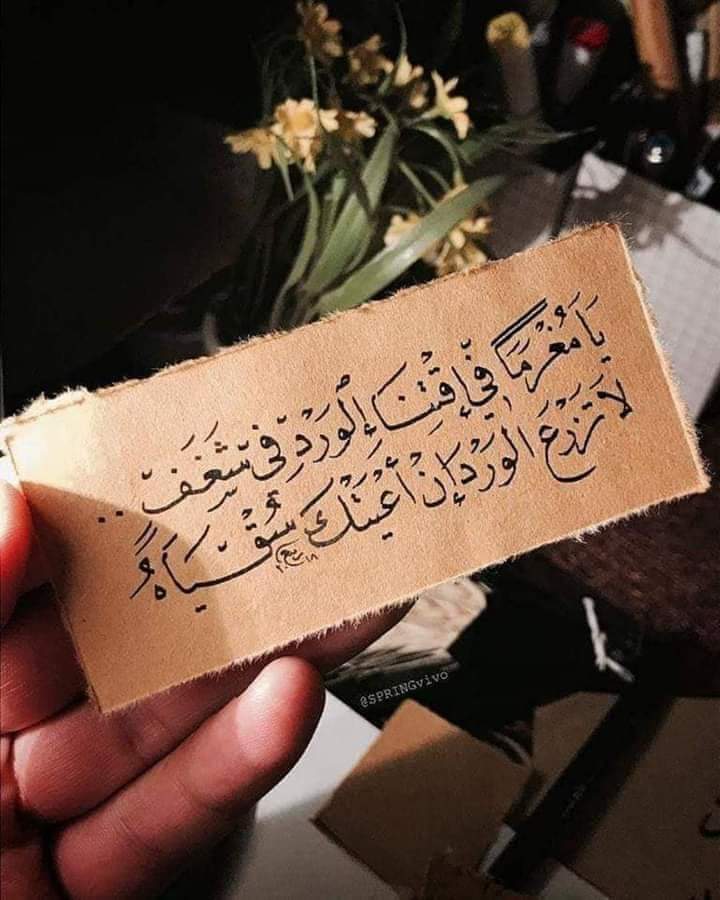 يَا مُغْرَمًا فِي إقْتِنَاءِ الْوَرْدِ فِي شَغَفٍ ..
لَا تَزْرَعِ الْوَرْدَ إِنْ أَعْيَتْكَ سُقْيَاهُ
ربيع ٢٠١٨
@SPRINGvivo